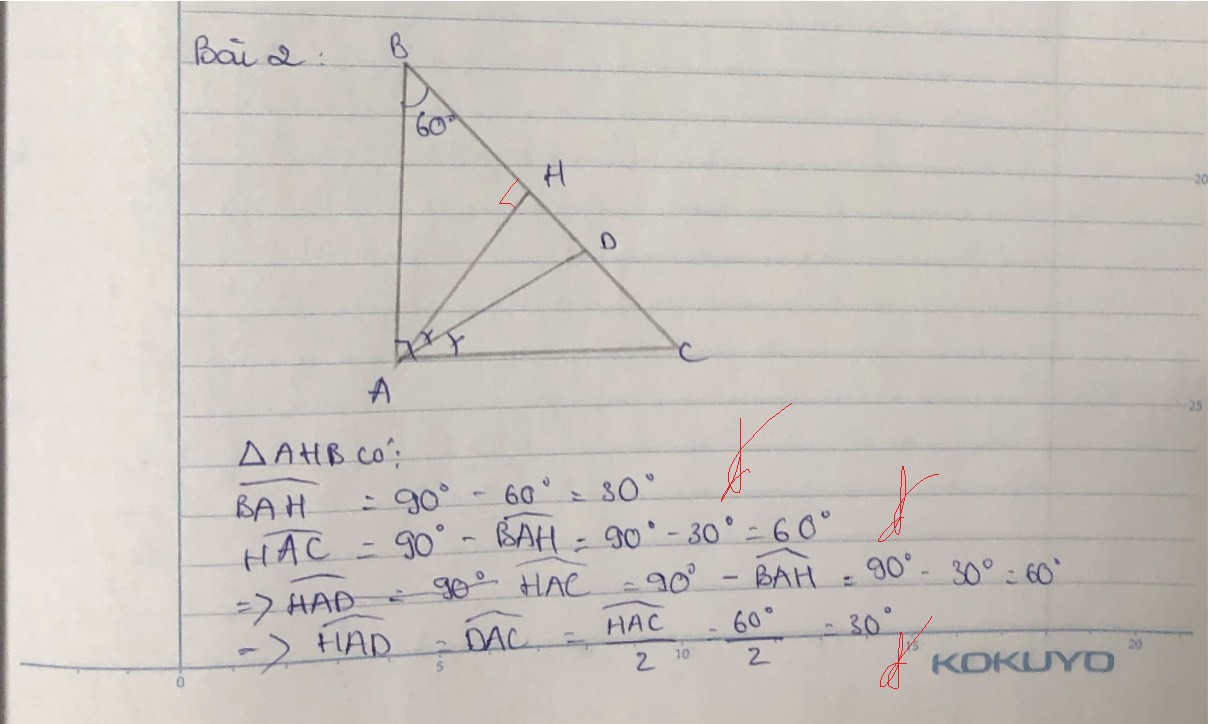 Bài 2:
B
60°
H
20
D
A
C
25
△AHB có:
BAH = 90° - 60° = 30°
HAC = 90° - BAH = 90° - 30° = 60°
=> HAD = 90° HAC = 90° - BAH = 90° - 30° = 60°
=> HAD = DAC = HAC/2 = 60°/2 = 30°
0 5 10 15 20
KOKUYO